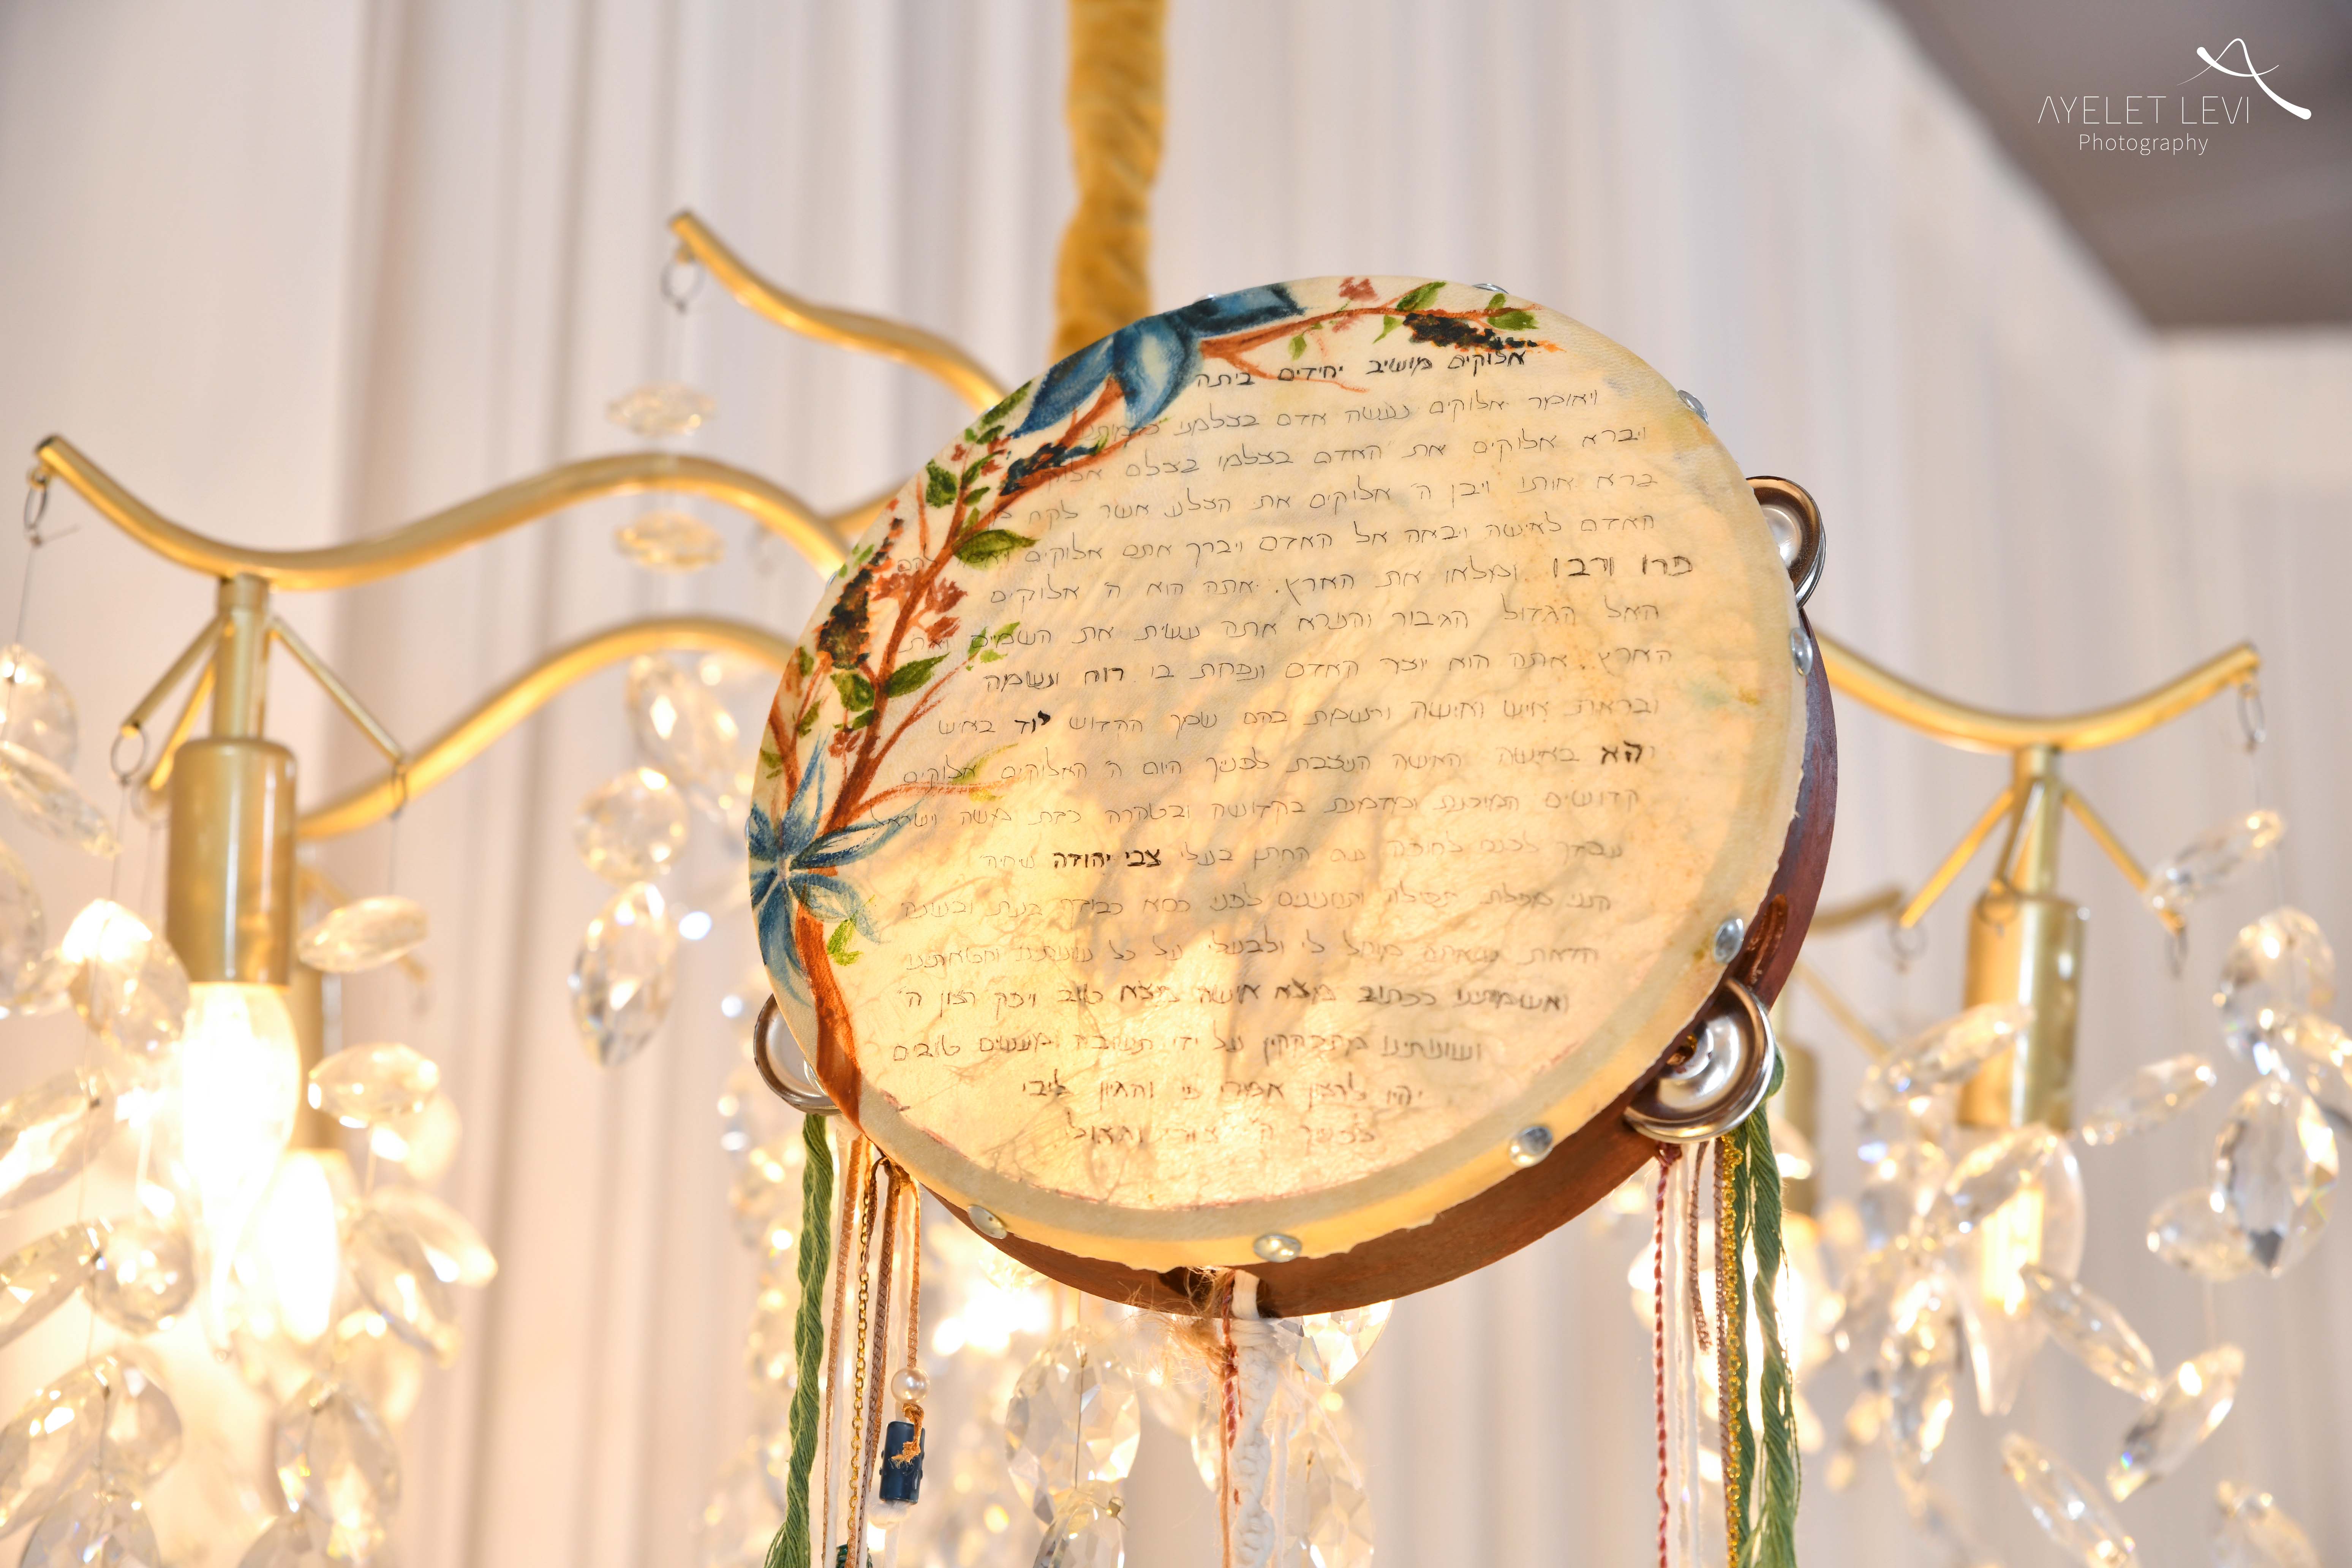 AYELET LEVI
Photography
אלוקים מושיב יחידים ביתה
ויאומר אלוקים נעשה אדם בצלמנו
ויברא אלוקים את האדם בצלמו בצלם
ברא אותו ויבן ה' אלוקים את הצלע אשר לקח
האדם לאישה ויבאה אל האדם ויברך אתם אלוקים
פרו ורבו ומלאו את הארץ. אתה הוא ה' אלוקים
האל הגדול הגיבור והנורא אתה עשית את השמים ואת
הארץ. אתה הוא יוצר האדם ונפחת בו רוח ונשמה
ובראת איש ואישה ורשמת בהם שמך הקדוש יוד באיש
והא באישה האישה הניצבת לפניך היום ה' האלוקים אלוקים
קדושים המוכנת ומזומנת בקדושה ובטהרה כדת משה וישראל
לחופה עם החתן בעלי צבי יהודה שיחיה
תפילה ותחנונים לפני כסא כבודך בעת ובשעה
הזאת מחל לי ולבעלי על כל
ואשמותינו ככתוב מצא אישה מצא טוב ויפק רצון ה'
על ידי תשובה ומעשים טובים
יהיו לרצון אמרי פי והגיון ליבי
לפניך ה' צורי וגואלי